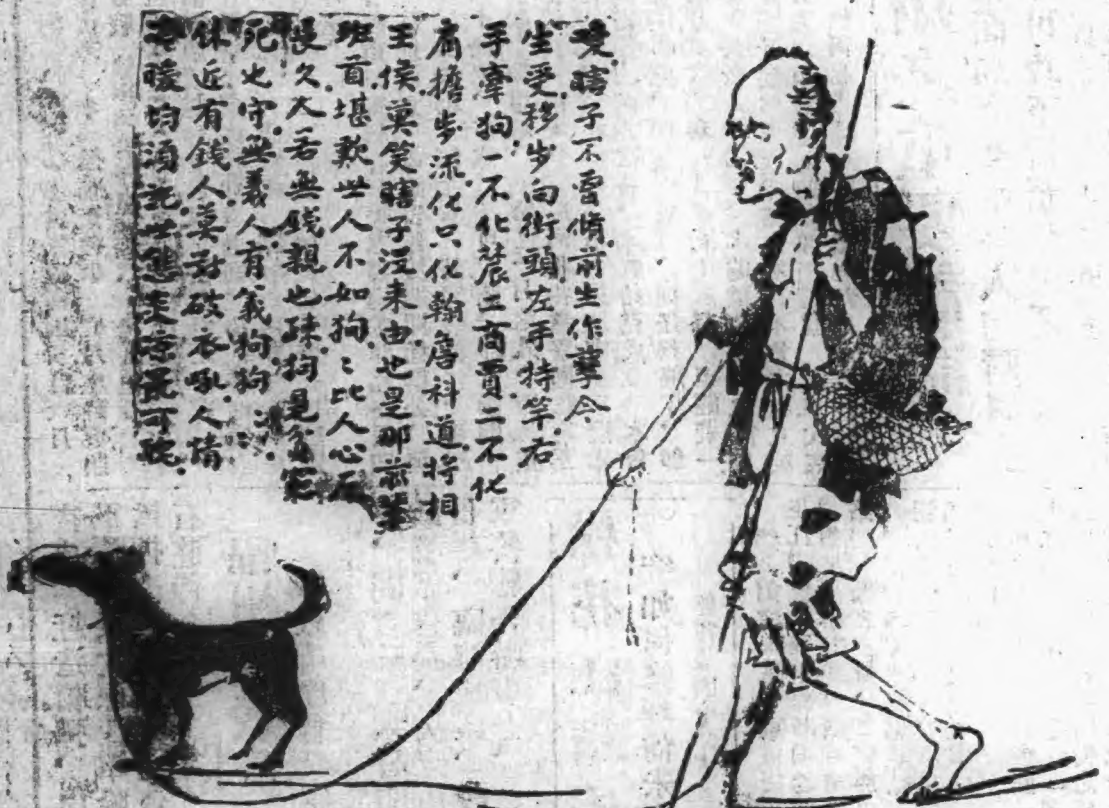 瞎子不曾脩前生作孽今
生受移步向街頭左手持竿右
手牽狗一不化農工商賈二不化
肩擔步流化只化翰詹科道将相
王侯莫笑瞎子没来由也是那前輩
班首堪歎世人不如狗〻比人心
長久人若無錢親也疎狗是
死也守無義人有義狗狗〻〻
休近有錢人莫對破衣吼人情
冷暖均須記世態炎涼最可